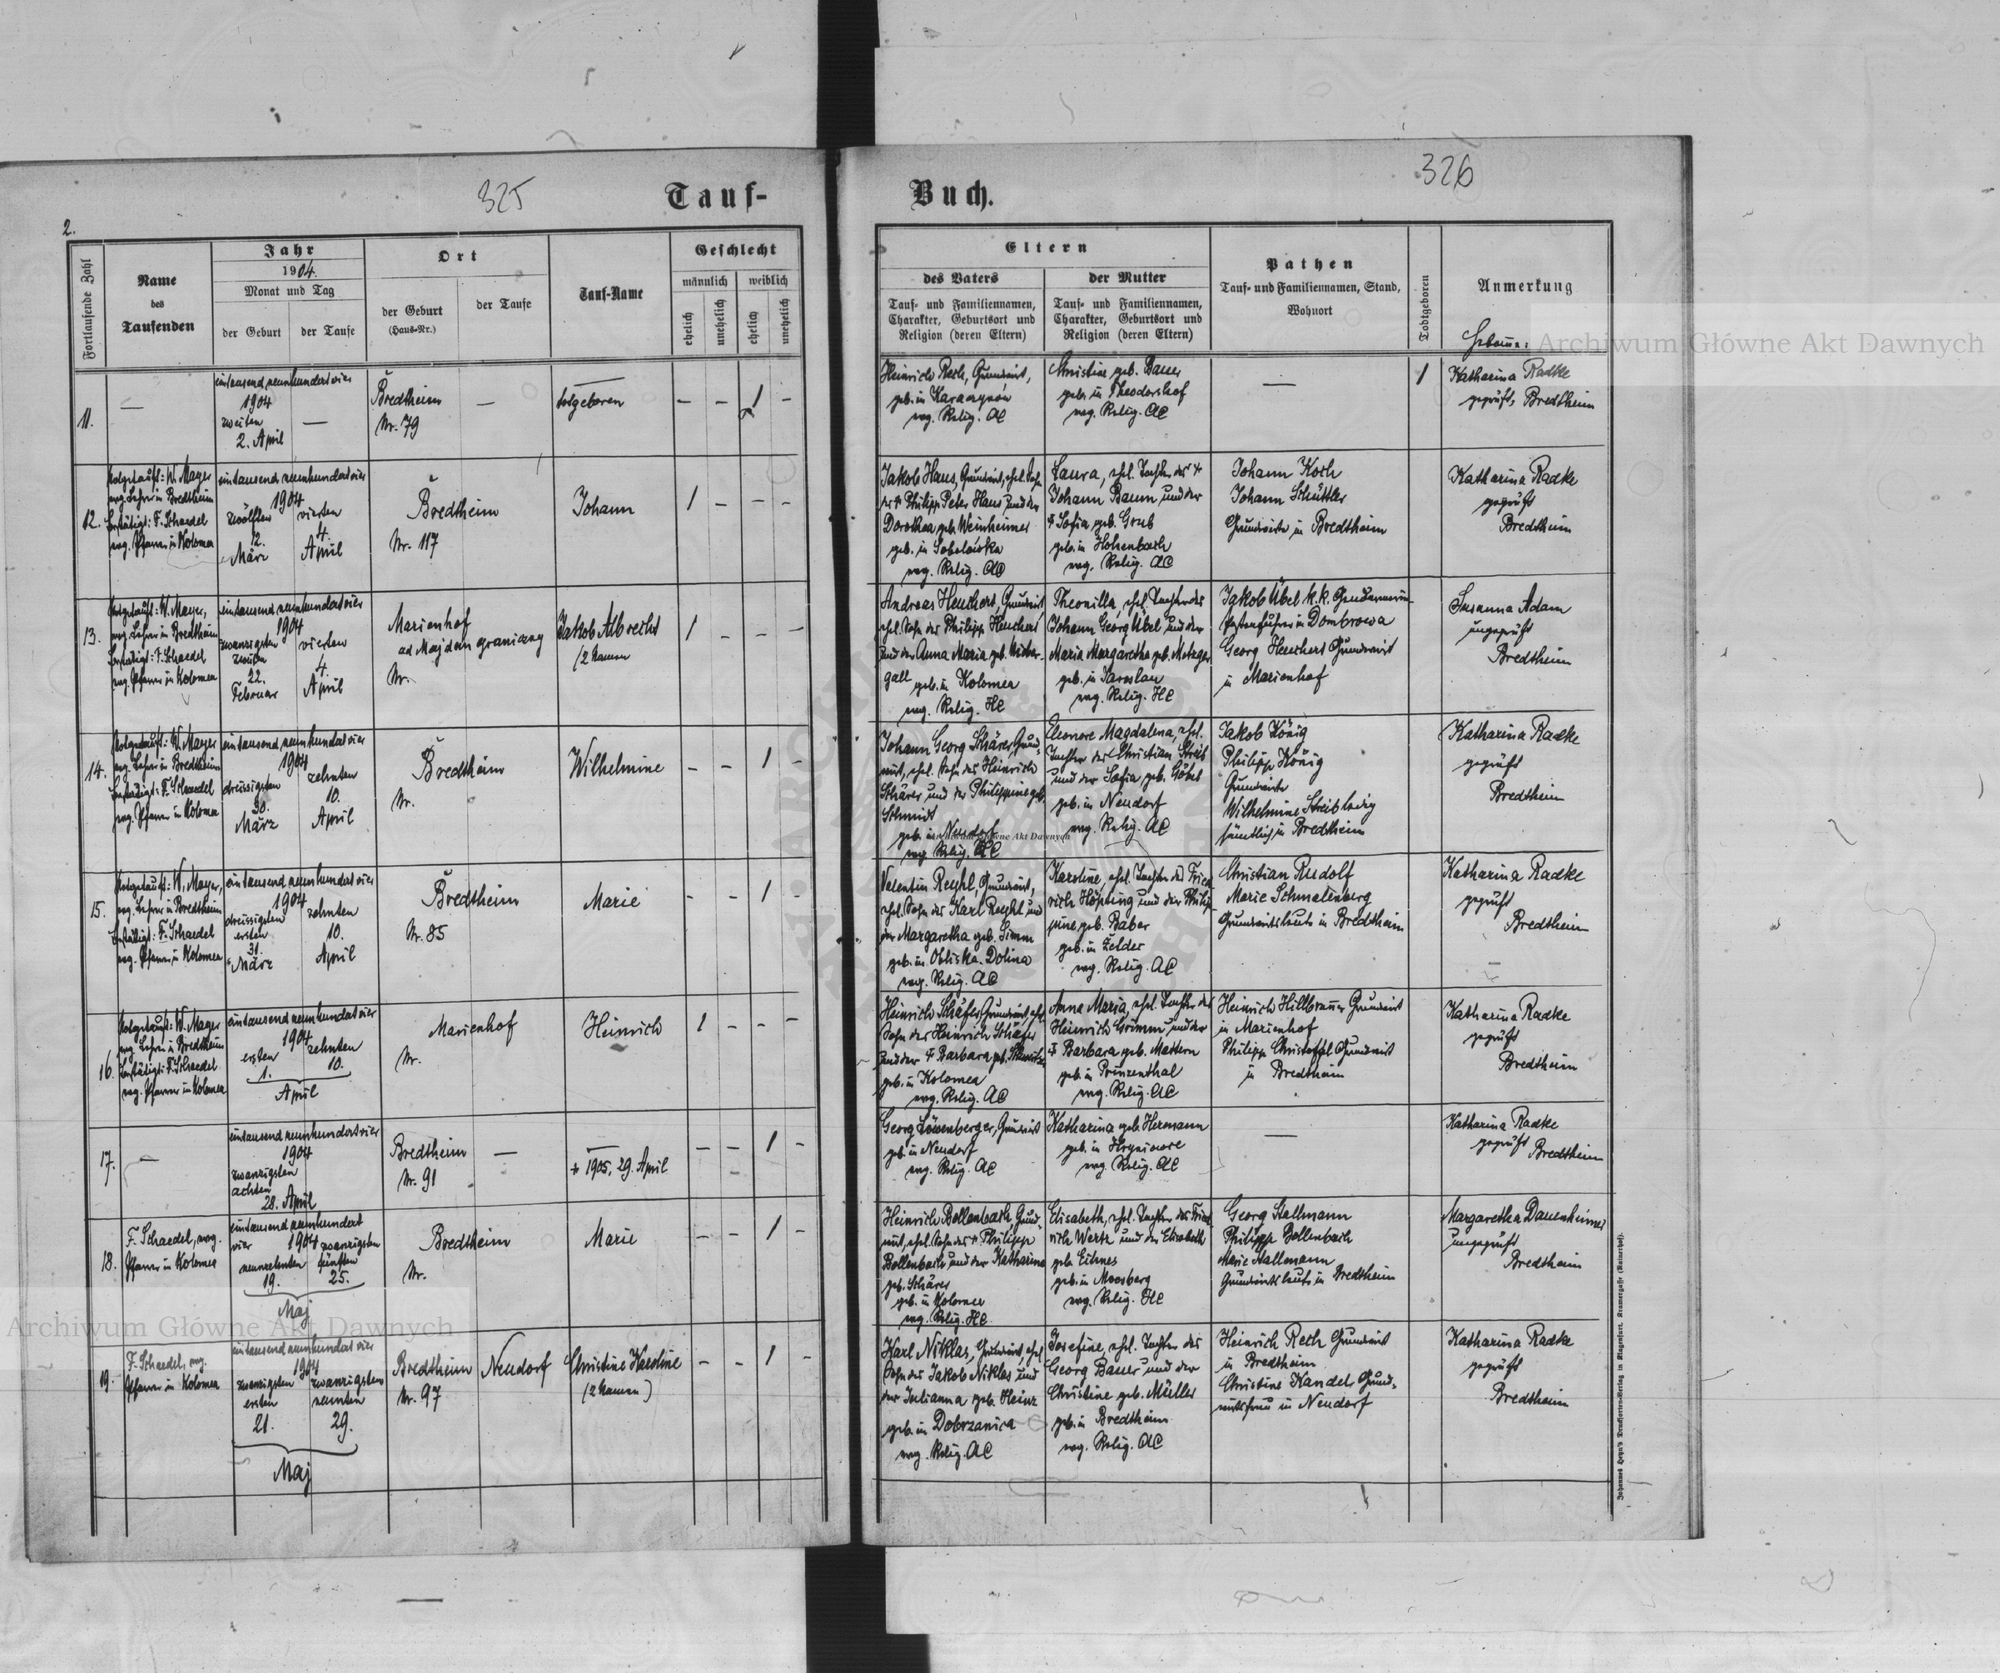 325
Tauf-
2.
Fortlaufende Zahl
Name
des
Taufenden
Jahr
1904.
Monat und Tag
der Geburt
der Taufe
Ort
der Geburt
(Haus-Nr.)
der Taufe
Tauf-Name
Geschlecht
männlich
weiblich
ehelich
unehelich
ehelich
unehelich
11.
—
eintausend neunhundert vier
1904
zweiten
2. April
—
Bredtheim
Nr. 79
—
todgeboren
— — 1 —
12.
Notgetauft: W. Mayer
evg. Lehrer in Bredtheim
bestätigt: F. Schaedel
evg. Pfarrer in Kolomea
eintausend neunhundert vier
1904
zwölften
12.
März
vierten
4.
April
Bredtheim
Nr. 117
Johann
1 — — —
13.
Notgetauft: W. Mayer,
evg. Lehrer in Bredtheim
bestätigt: F. Schaedel
evg. Pfarrer in Kolomea
eintausend neunhundert vier
1904
zwanzigsten
zweiten
22.
Februar
vierten
4.
April
Marienhof
ad Majdan graniczny
Nr.
Jakob Albrecht
(2 Namen
1 — — —
14.
Notgetauft: W. Mayer
evg. Lehrer in Bredtheim
bestätigt: F. Schaedel
evg. Pfarrer in Kolomea
eintausend neunhundert vier
1904
dreissigsten
30.
März
zehnten
10.
April
Bredtheim
Nr.
Wilhelmine
— — 1 —
15.
Notgetauft: W. Mayer,
evg. Lehrer in Bredtheim
bestätigt: F. Schaedel
evg. Pfarrer in Kolomea
eintausend neunhundert vier
1904
dreissigsten
ersten
31.
März
zehnten
10.
April
Bredtheim
Nr. 85
Marie
— — 1 —
16.
Notgetauft: W. Mayer
evg. Lehrer in Bredtheim
bestätigt: F. Schaedel
evg. Pfarrer in Kolomea
eintausend neunhundert vier
1904
ersten
1.
zehnten
10.
April
Marienhof
Nr.
Heinrich
1 — — —
17.
—
eintausend neunhundert vier
1904
zwanzigsten
achten
28. April
Bredtheim
Nr. 91
—
—
+ 1905, 29. April
— — 1 —
18.
F. Schaedel, evg.
Pfarrer in Kolomea
eintausend neunhundert
vier 1904
neunzehnten
19.
zwanzigsten
fünften
25.
Maj
Bredtheim
Nr.
Marie
— — 1 —
19.
F. Schaedel, evg.
Pfarrer in Kolomea
eintausend neunhundert vier
1904
zwanzigsten
ersten
21.
zwanzigsten
neunten
29.
Maj
Bredtheim
Nr. 97
Neudorf
Christine Karoline
(2 Namen)
— — 1 —
326
Buch.
Eltern
des Vaters
Tauf- und Familiennamen,
Charakter, Geburtsort und
Religion (deren Eltern)
der Mutter
Tauf- und Familiennamen,
Charakter, Geburtsort und
Religion (deren Eltern)
Pathen
Tauf- und Familiennamen, Stand,
Wohnort
Todtgeboren
Anmerkung
Hebamme:
Heinrich Rech, Grundwirt,
geb. in
evg. Relig. AC
Christine geb. Bauer
geb. in Theodorshof
evg. Relig. AC
—
1
Katharina Radke
geprüft, Bredtheim
Jakob Haus, Grundwirt, ehel. Sohn
des + Philipp Peter Haus und der
Dorothea geb. Weinheimer
geb. in Sobolówka
evg. Relig. AC
Laura, ehel. Tochter des +
Johann Baum und der
+ Sofia geb. Grub
geb. in Hohenbach
evg. Relig. AC
Johann Koch
Johann Schüttler
Grundwirte in Bredtheim
Katharina Radke
geprüft
Bredtheim
Andreas Heuchert, Grundwirt
ehel. Sohn des Philipp Heuchert
und der Anna Maria geb. Wieder-
gall geb. in Kolomea
evg. Relig. HC
Theonilla, ehel. Tochter des
Johann Georg Übel und der
Maria Margaretha geb. Metzger
geb. in Jaroslau
evg. Relig. HC
Jakob Übel k.k. Gendarmerie-
Postenführer in Dombrowa
Georg Heuchert Grundwirt
in Marienhof
Susanna Adam
ungeprüft
Bredtheim
Johann Georg Schärer, Grund-
wirt, ehel. Sohn des Heinrich
Schärer und der Philippine geb.
Schmidt
geb. in Neudorf
evg. Relig. HC
Eleonore Magdalena, ehel.
Tochter des Christian Streib
und der Sofia geb. Göbel
geb. in Neudorf
evg. Relig. AC
Jakob König
Philipp König
Grundwirte
Wilhelmine Streib ledig
sämtlich in Bredtheim
Katharina Radke
geprüft
Bredtheim
Valentin Reyhl, Grundwirt,
ehel. Sohn des Karl Reyhl und
der Margaretha geb. Simm
geb. in Obliska, Dolina
evg. Relig. AC
Karoline, ehel. Tochter des Fried-
rich Höpting und der Philip-
pine geb. Baber
geb. in Zelder
evg. Relig. AC
Christian Rudolf
Marie Schmalenberg
Grundwirtsleute in Bredtheim
Katharina Radke
geprüft
Bredtheim
Heinrich Schäfer, Grundwirt, ehel.
Sohn des Heinrich Schäfer
und der + Barbara geb.
geb. in Kolomea
evg. Relig. AC
Anna Maria, ehel. Tochter des
Heinrich Grimm und der
+ Barbara geb. Mattern
geb. in Prinzenthal
evg. Relig. AC
Heinrich Hillbrauner Grundwirt
in Marienhof
Philipp Christoffel Grundwirt
in Bredtheim
Katharina Radke
geprüft
Bredtheim
Georg Löwenberger, Grundwirt
geb. in Neudorf
evg. Relig. AC
Katharina geb. Hermann
geb. in Hryniowce
evg. Relig. AC
—
Katharina Radke
geprüft
Bredtheim
Heinrich Bollenbach, Grund-
wirt, ehel. Sohn des + Philipp
Bollenbach und der Katharina
geb. Schärer
geb. in Kolomea
evg. Relig. HC
Elisabeth, ehel. Tochter des Fried-
rich Wertz und der Elisabeth
geb. Eichner
geb. in Moosberg
evg. Relig. HC
Georg Hallmann
Philipp Bollenbach
Marie Hallmann
Grundwirtsleute in Bredtheim
Margaretha Dauenheimer
ungeprüft
Bredtheim
Karl Niklas, Grundwirt, ehel.
Sohn des Jakob Niklas und
der Julianna geb. Heinz
geb. in Dobrzanica
evg. Relig. AC
Josefine, ehel. Tochter des
Georg Bauer und der
Christine geb. Müller
geb. in Bredtheim
evg. Relig. AC
Heinrich Rech Grundwirt
in Bredtheim
Christine Kandel Grund-
wirtsfrau in Neudorf
Katharina Radke
geprüft
Bredtheim
Johannes Heyn's Drucksortenverlag in Klagenfurt, Kramergasse (Rainerhof).
Archiwum Główne Akt Dawnych
Archiwum Główne Akt Dawnych
Archiwum Główne Akt Dawnych